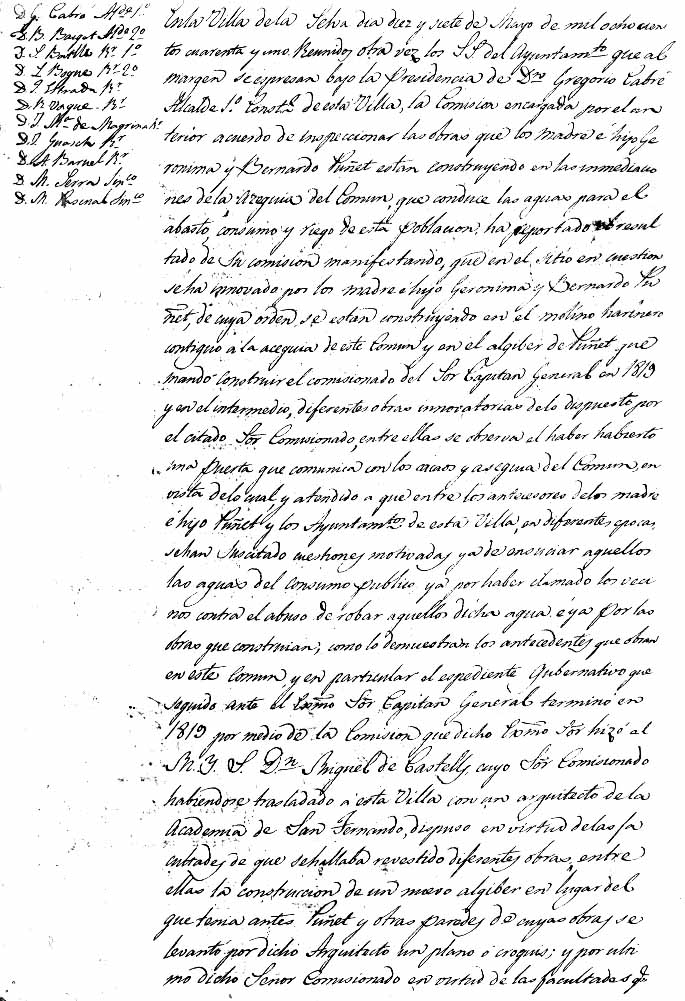 D. G. Cabré Alde. 1º
D. B. Baget Alde 2º
D. S. Batlle Rr. 1º
D. L. Bogue Rr. 2º
D. P. Rr.
D. P. Vaque Rr.
D. J. Mª de Magrina Rr.
D. J. Guasch Rr.
D. A. Baruel Rr
D. M. Serra Sinco
D. M. Sinco
En la Villa de la Selva dia diez y siete de Mayo de mil ochocien
tos cuarenta y uno. Reunidos otra vez los SS. del Ayuntamto que al
margen se espresan bajo la Presidencia de Dn Gregorio Cabré
Alcalde 1º Constl de esta Villa, la Comision encargada por el an
terior acuerdo de inspeccionar las obras que los madre é hijo Ge
ronima y Bernardo Puñet estan construyendo en las inmediacio
nes de la Azequia del Comun, que conduce las aguas para el
abasto, consumo y riego de esta poblacion, ha reportado el resul
tado de su comision manifestando, que en el sitio en cuestion
se ha innovado por los madre e hijo Geronima y Bernardo Pu
ñet, de cuya orden se estan construyendo en el molino harinero
contiguo á la acequia de este Comun y en el algiber de Puñet que
mandó construir el comisionado del Sor Capitan General en 1819
y en el intermedio, diferentes obras innovatorias de lo dispuesto por
el citado Sor Comisionado, entre ellas se observa el haber habierto
una puerta que comunica con los cacaos y asequia del Comun, en
vista de lo cual, y atendido a que entre los antecesores de los madre
é hijo Puñet y los Ayuntamtos de esta Villa, en diferentes epocas,
se han suscitado cuestiones motivadas ya de ensuciar aquellos
las aguas del consumo publico ya por haber clamado los veci
nos contra el abuso de robar aquellos dicha agua é ya por las
obras que construian; como lo demuestran los antecedentes que obran
en este Comun, y en particular el espediente Gubernativo que
seguido ante el Exmo Sor Capitan General terminó en
1819 por medio de la Comision que dicho Exmo Sor hizo al
M. Y. S. Dn Miguel de Castells, cuyo Sor Comisionado
habiendose trasladado á esta Villa con un arquitecto de la
Academia de San Fernando, dispuso en virtud de las fa
cultades de que se hallaba revestido diferentes obras, entre
ellas la construccion de un nuevo algiber en lugar del
que tenia antes Puñet y otras paredes de cuyas obras se
levantó por dicho Arquitecto un plano ó croquis; y por ulti
mo dicho Señor Comisionado en virtud de las facultades q.e